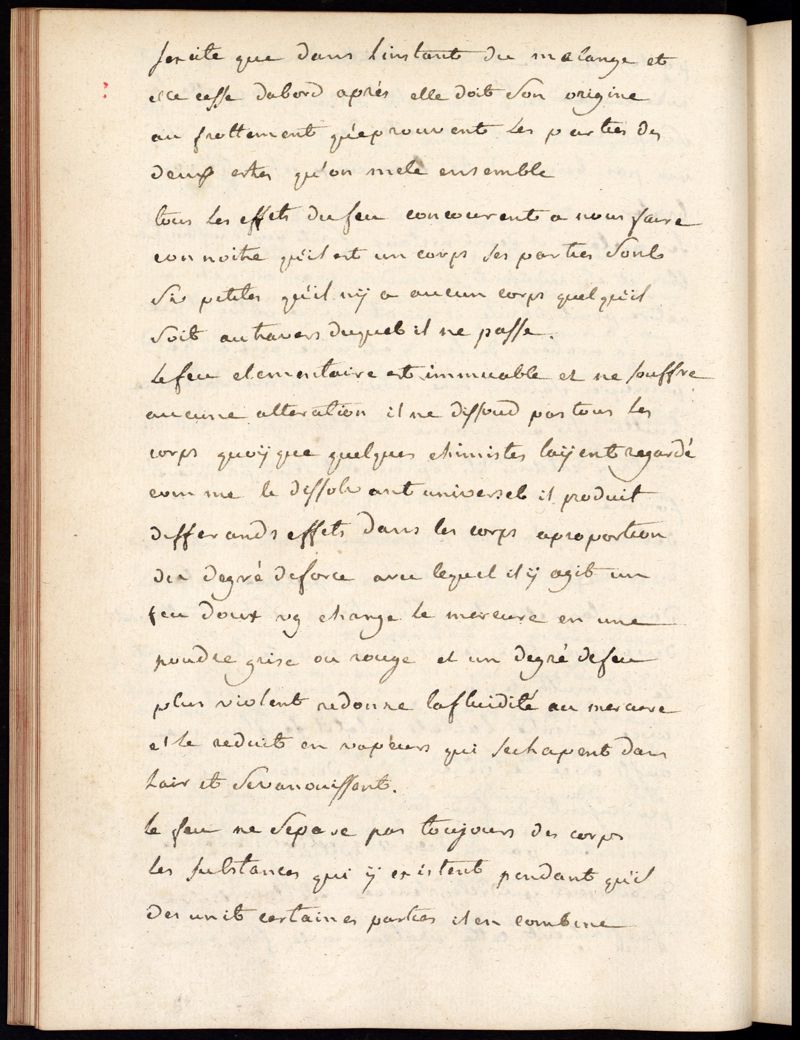 sexcite que dans linstant du melange et
elle cesse dabord aprés elle doit son origine
au frottement qu'eprouvent les parties des
deux estes qu'on mele ensemble
tous les effets du feu concourent a nous faire
connoitre qu'il est un corps ses parties sont
si petites qu'il n'ÿ a aucun corps quelqu'il
soit autravers duquel il ne passe.
Le feu elementaire est immuable et ne souffre
aucune alteration il ne dissoud pas tous les
corps quoÿque quelques chimistes laÿent regardé
comme le dissolvant universel il produit
differands effets dans les corps aproportion
du degré deforce avec lequel il ÿ agit un
feu doux vg change le mercure en une
poudre grise ou rouge et un degré defeu
plus violent redonne lafluidité au mercure
et le reduit en vapeurs qui sechapent dans
lair et sevanouissent.
le feu ne separe pas toujours des corps
les substances qui ÿ existent pendant qu'il
desunit certaines parties il en combine